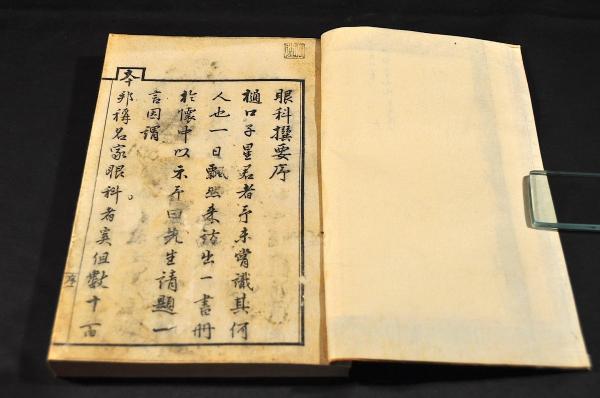 眼科撰要序
樋口子星君者予未嘗識其何
人也一日飄然来訪出一書册
於懷中以示予曰先生請題一
言因謂
本邦稱名家眼科者奚但數十百
序